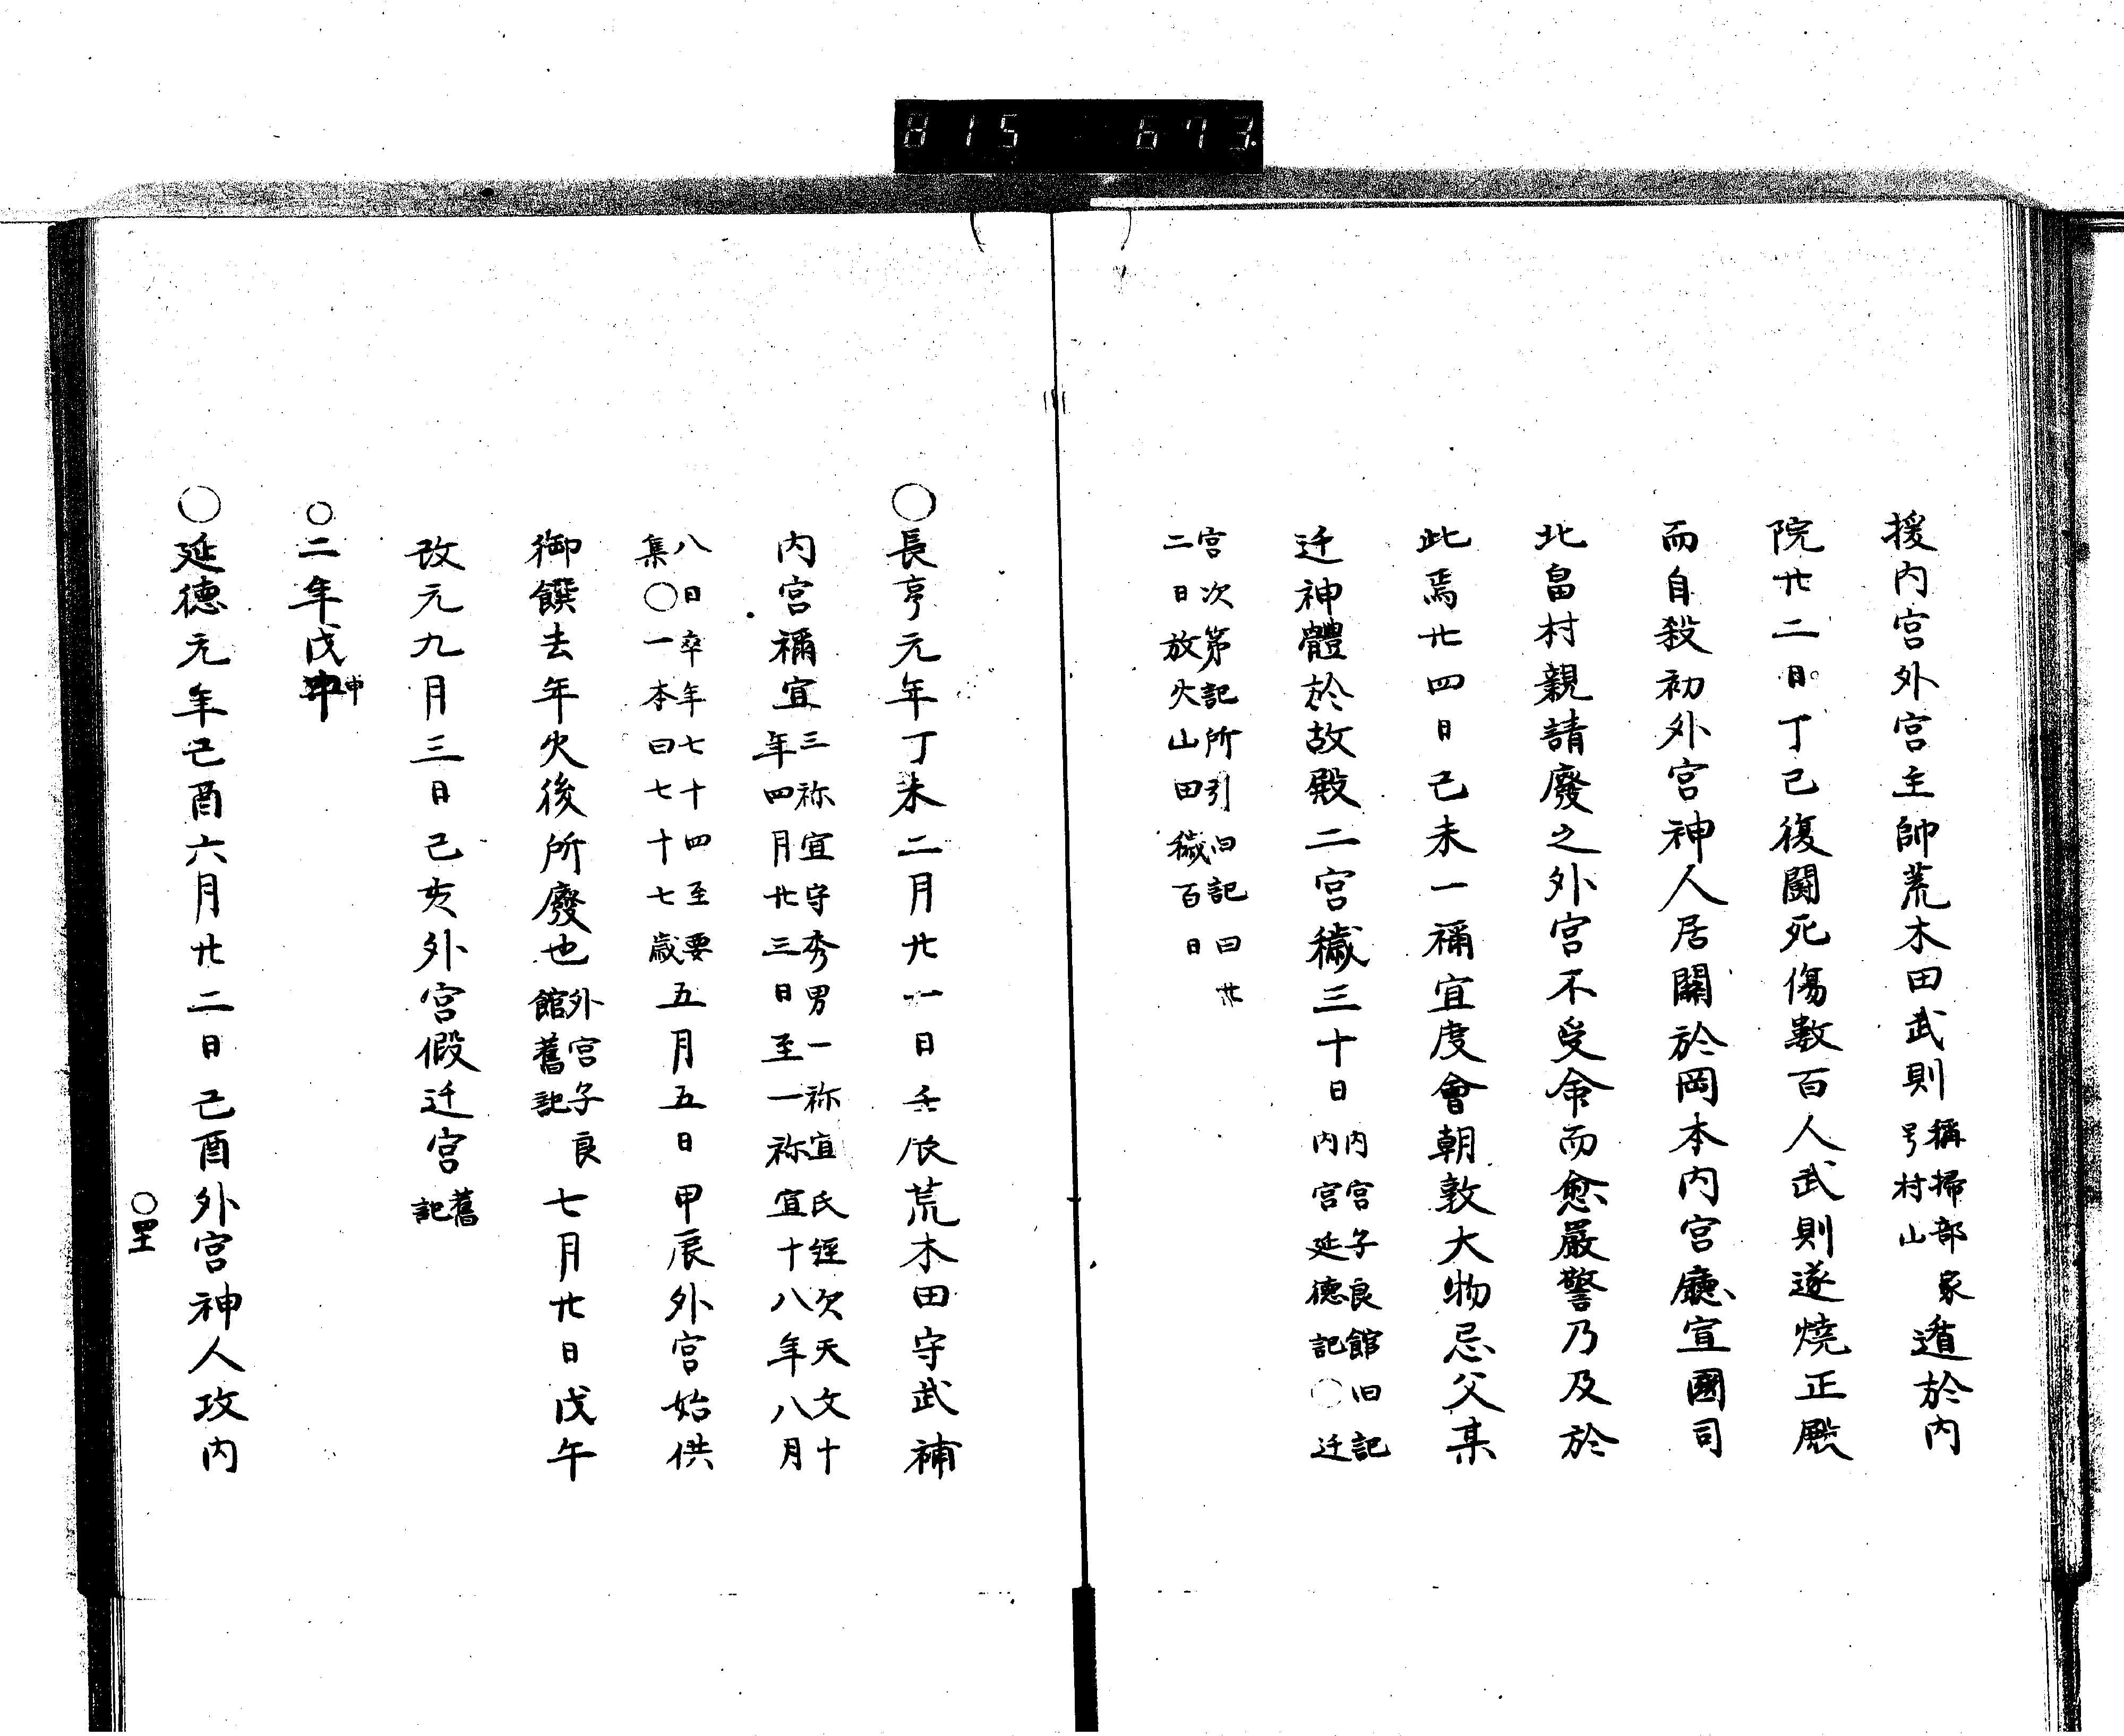 815 673.
援内宮外宮主帥荒木田武則稱掃部家号村山遁於内
院廿二日丁巳復闘死傷數百人武則遂燒正殿
而自殺初外宮神人居關於岡本内宮廳宣國司
北畠村親請廢之外宮不受命而愈嚴警乃及於
此焉廿四日己未一禰宜度會朝敦大物忌父某
迁神體於故殿二宮穢三十日内宮子良館旧記内宮延德記○迁
宮次第記所引旧記曰廿二日放火山田穢百日
○長亨元年丁未二月廿一日壬辰荒木田守武補
内宮禰宜三祢宜守秀男一祢宜氏經次天文十年四月廿三日至一祢宜十八年八月
八日卒年七十四至要集○一本曰七十七歲五月五日甲辰外宮始供
御饌去年火後所廢也外宮子良館舊記七月廿日戊午
改元九月三日己亥外宮假迁宮舊記
○二年戊申申
○延德元年己酉六月廿二日己酉外宮神人攻内
○四十一